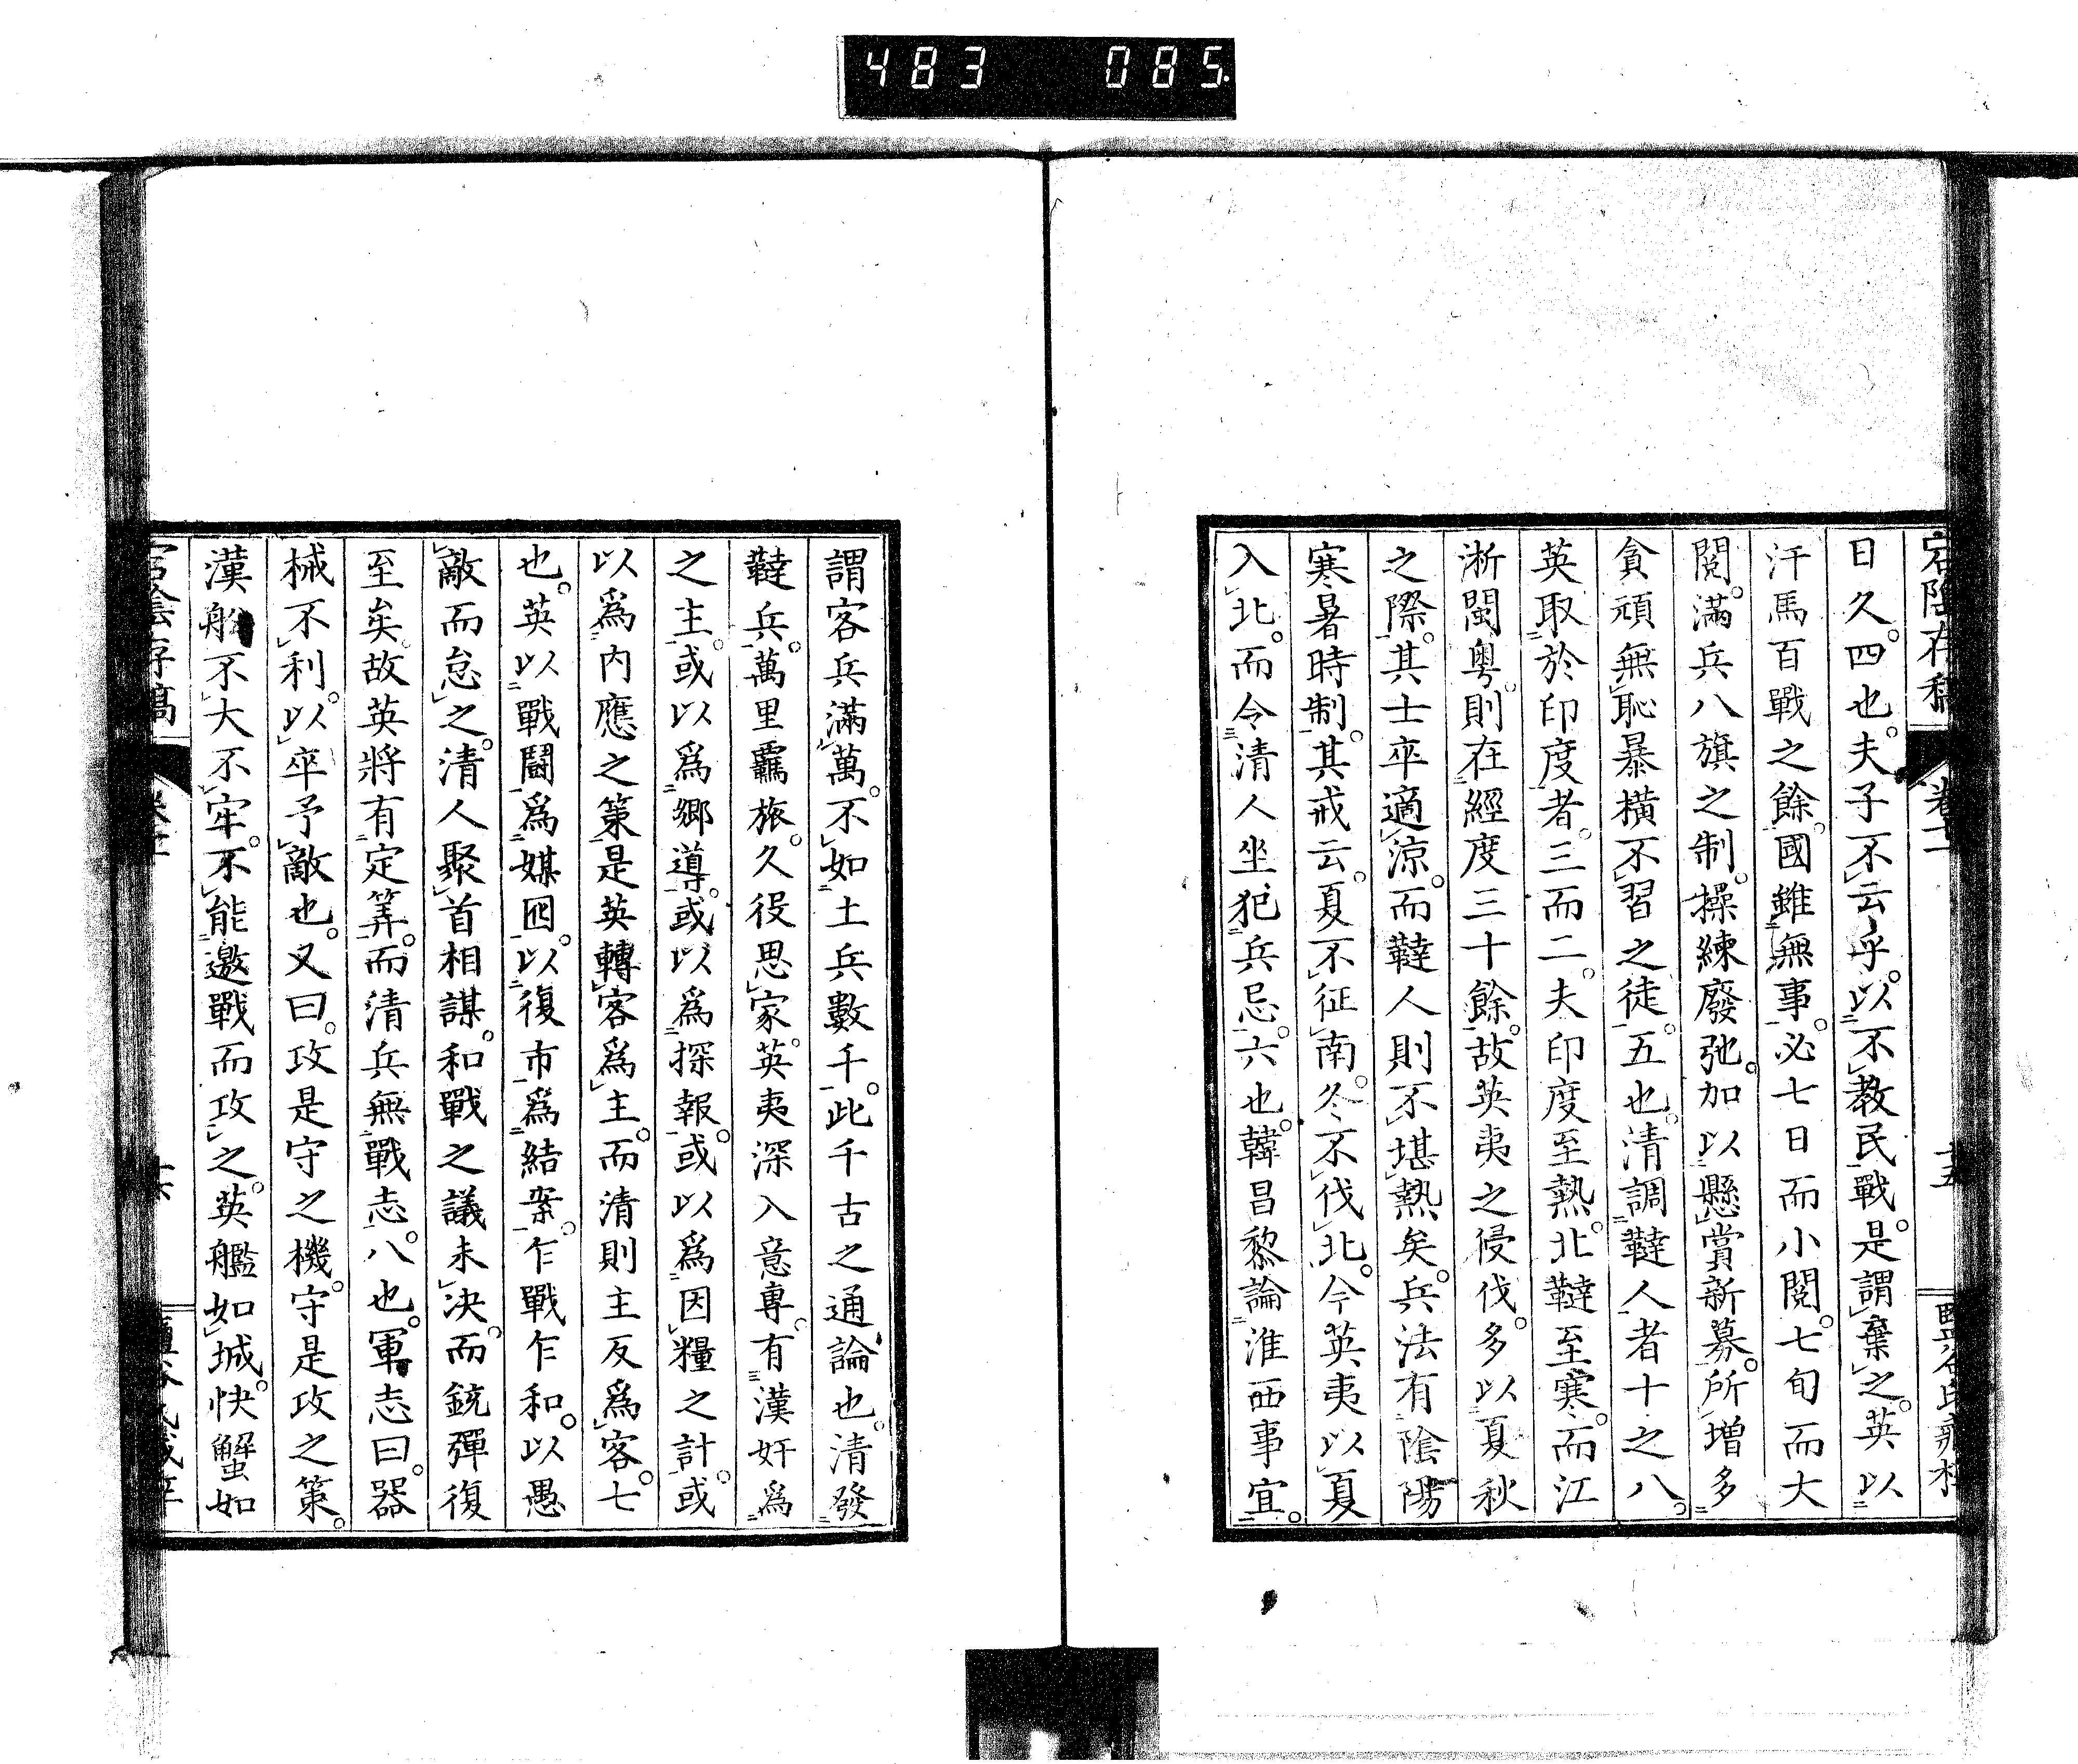 483 085
宕陰存稿 卷十一 十五
日久。四也。夫子不云乎。以不教民戰。是謂棄之。英以
汗馬百戰之餘。國雖無事。必七日而小閱。七旬而大
閱。滿兵八旗之制。操練廢弛。加以懸賞新募。所增多
貪頑無恥暴橫不習之徒。五也。清調韃人者十之八。
英取於印度者。三而二。夫印度至熱。北韃至寒。而江
淅閩粤。則在經度三十餘。故英夷之侵伐。多以夏秋
之際。其士卒適凉。而韃人則不堪熱矣。兵法有陰陽
寒暑時制。其戒云。夏不征南。冬不伐北。今英夷以夏
入北。而令清人坐犯兵忌。六也。韓昌黎論淮西事宜。
謂客兵滿萬。不如土兵數千。此千古之通論也。清發
韃兵。萬里羈旅。久役思家。英夷深入意專。有漢奸爲
之主。或以爲鄉導。或以爲探報。或以爲因糧之計。或
以爲內應之策。是英轉客爲主。而清則主反爲客。七
也。英以戰鬪爲媒囮。以復市爲結案。乍戰乍和。以愚
敵而怠之。清人聚首相謀。和戰之議未決。而銃彈復
至矣。故英將有定筭。而清兵無戰志。八也。軍志曰。器
械不利。以卒予敵也。又曰。攻是守之機。守是攻之策。
漢船不大不牢。不能邀戰而攻之。英艦如城。快蟹如
宕陰存稿